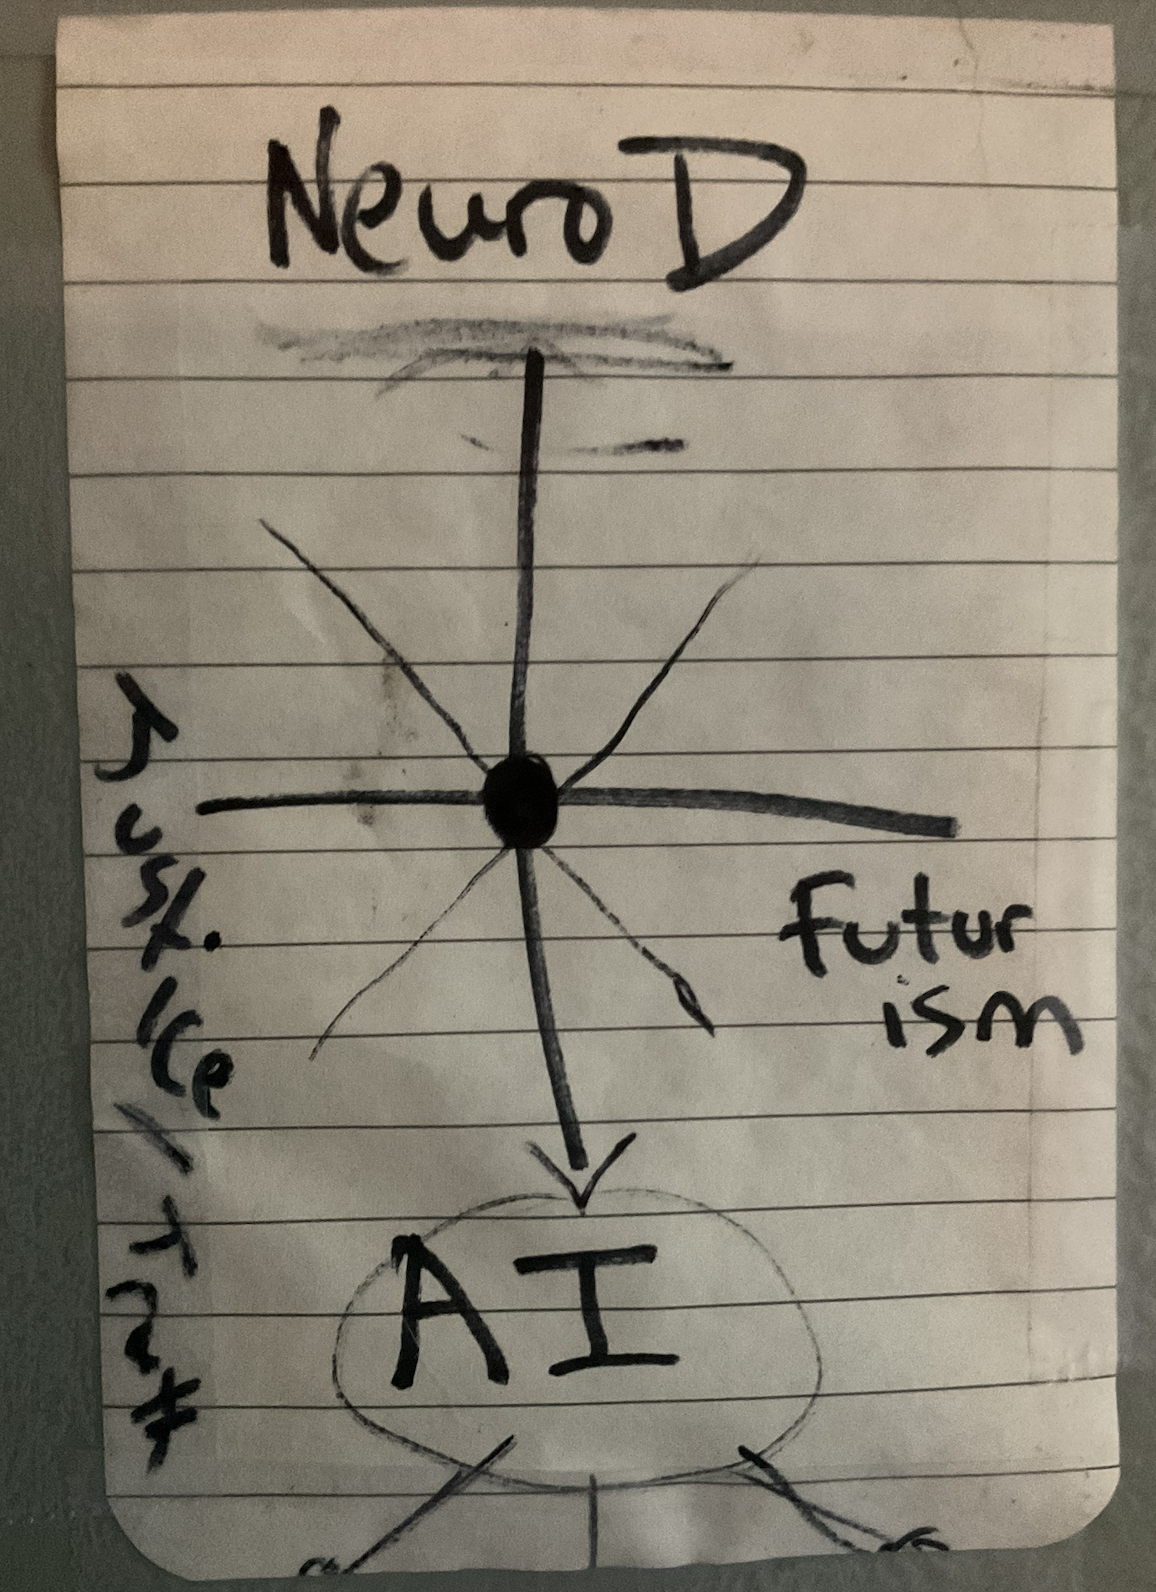 Neuro D
Justice //
Futur
ism
AI